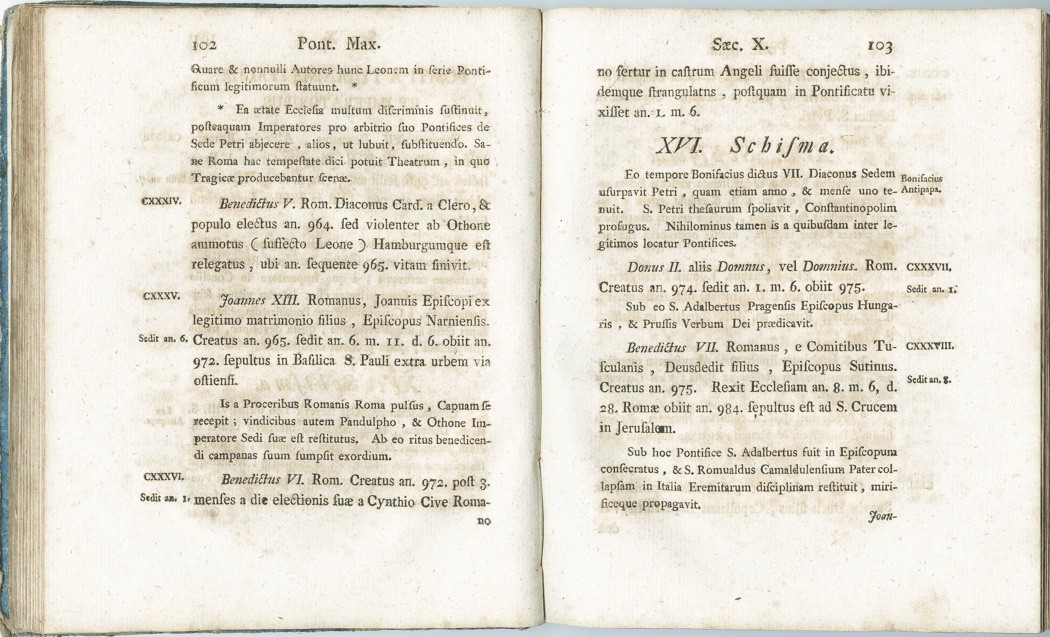 102 Pont. Max.
Quare & nonnulli Autores hunc Leonem in serie Ponti-
ficum legitimorum statuunt. *
* Ea ætate Ecclesia multum discriminis sustinuit,
posteaquam Imperatores pro arbitrio suo Pontifices de
Sede Petri abjecere , alios, ut lubuit, substituendo. Sa-
ne Roma hac tempestate dici potuit Theatrum, in quo
Tragicæ producebantur scenæ.
CXXXIV. Benedictus V. Rom. Diaconus Card. a Clero, &
populo electus an. 964. sed violenter ab Othone
ammotus ( suffecto Leone ) Hamburgumque est
relegatus , ubi an. sequente 965. vitam finivit.
CXXXV. Joannes XIII. Romanus, Joannis Episcopi ex
legitimo matrimonio filius , Episcopus Narniensis.
Sedit an. 6. Creatus an. 965. sedit an. 6. m. 11. d. 6. obiit an.
972. sepultus in Basilica S. Pauli extra urbem via
ostiensi.
Is a Proceribus Romanis Roma pulsus , Capuam se
recepit ; vindicibus autem Pandulpho , & Othone Im-
peratore Sedi suæ est restitutus. Ab eo ritus benedicen-
di campanas suum sumpsit exordium.
CXXXVI. Benedictus VI. Rom. Creatus an. 972. post 3.
Sedit an. 1. menses a die electionis suæ a Cynthio Cive Roma-
no
Sæc. X. 103
no fertur in castrum Angeli fuisse conjectus , ibi-
demque strangulatns , postquam in Pontificatu vi-
xisset an. 1. m. 6.
XVI. Schisma.
Eo tempore Bonifacius dictus VII. Diaconus Sedem Bonifacius
usurpavit Petri , quam etiam anno , & mense uno te- Antipapa.
nuit. S. Petri thesaurum spoliavit , Constantinopolim
profugus. Nihilominus tamen is a quibusdam inter le-
gitimos locatur Pontifices.
Donus II. aliis Domnus, vel Domnius. Rom. CXXXVII.
Creatus an. 974. sedit an. 1. m. 6. obiit 975. Sedit an. 1.
Sub eo S. Adalbertus Pragensis Episcopus Hunga-
ris , & Prussis Verbum Dei prædicavit.
Benedictus VII. Romanus , e Comitibus Tu- CXXXVIII.
sculanis , Deusdedit filius , Episcopus Sutinus.
Creatus an. 975. Rexit Ecclesiam an. 8. m. 6, d. Sedit an. 8.
28. Romæ obiit an. 984. sepultus est ad S. Crucem
in Jerusalem.
Sub hoc Pontifice S. Adalbertus fuit in Episcopum
consecratus , & S. Romualdus Camaldulensium Pater col-
lapsam in Italia Eremitarum disciplinam restituit , miri-
ficeque propagavit.
Joan-